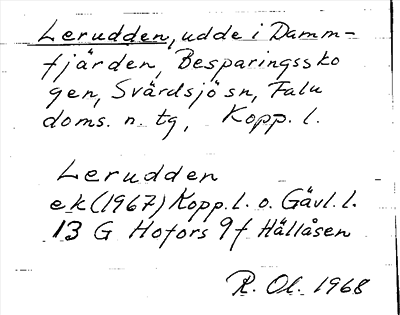 Lerudden, udde i Damm-
fjärden, Besparingssko
gen, Svärdsjö sn, Falu
doms. n. tg, Kopp. l.
Lerudden
ek (1967) Kopp. l. o. Gävl. l.
13 G Hofors 9 f Hällåsen
R. Ol. 1968